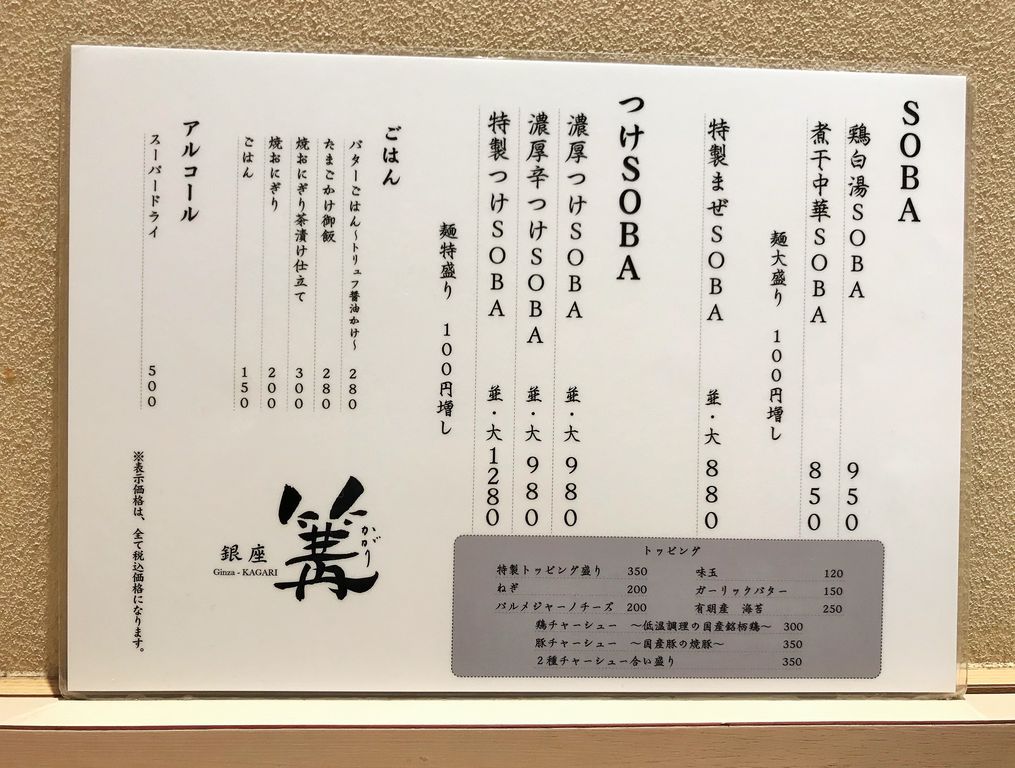 SOBA
鶏白湯SOBA 950
煮干中華SOBA 850
麺大盛り 100円増し
特製まぜSOBA 並・大 880
つけSOBA
濃厚つけSOBA 並・大 980
濃厚辛つけSOBA 並・大 980
特製つけSOBA 並・大 1280
麺特盛り 100円増し
ごはん
バターごはん〜トリュフ醤油かけ〜 280
たまごかけ御飯 280
焼おにぎり茶漬け仕立て 300
焼おにぎり 200
ごはん 150
アルコール
スーパードライ 500
※表示価格は、全て税込価格になります。
銀座
Ginza - KAGARI
篝
かがり
トッピング
特製トッピング盛り 350
ねぎ 200
パルメジャーノチーズ 200
味玉 120
ガーリックバター 150
有明産 海苔 250
鶏チャーシュー 〜低温調理の国産銘柄鶏〜 300
豚チャーシュー 〜国産豚の焼豚〜 350
2種チャーシュー合い盛り 350